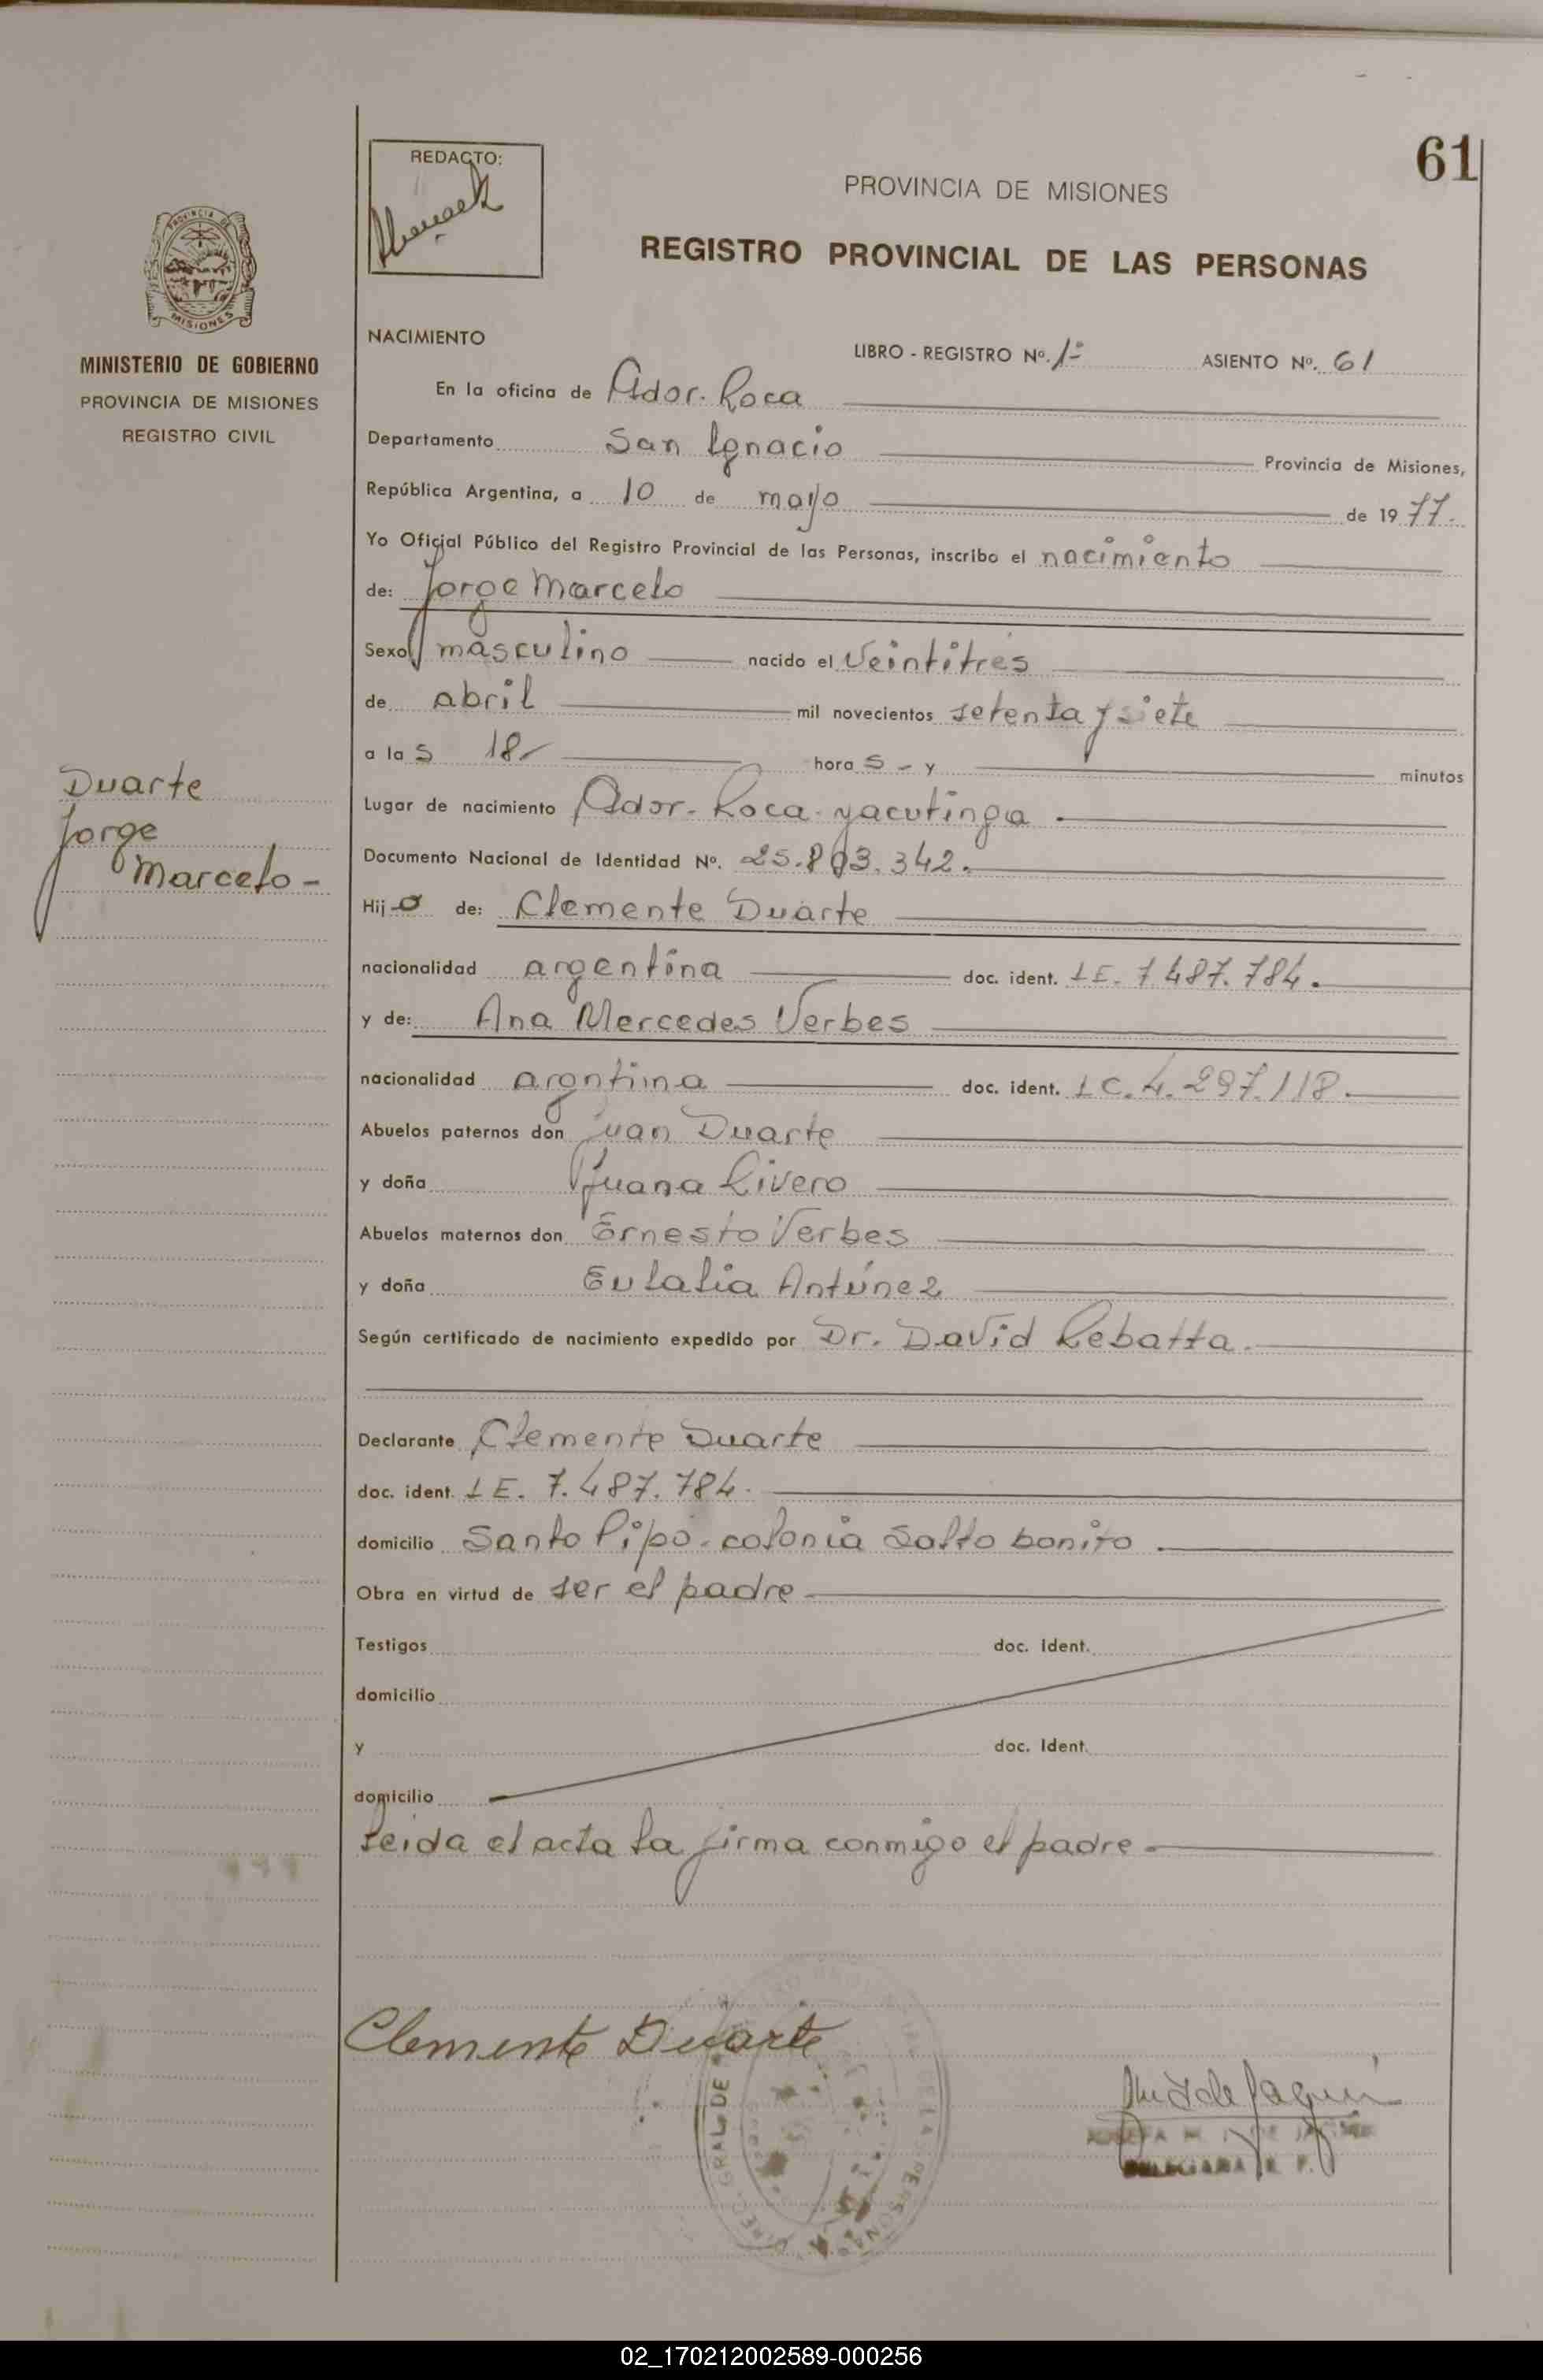 61
REDACTO:
PROVINCIA DE MISIONES
REGISTRO PROVINCIAL DE LAS PERSONAS
MINISTERIO DE GOBIERNO
PROVINCIA DE MISIONES
REGISTRO CIVIL
NACIMIENTO
LIBRO - REGISTRO Nº. 1º ASIENTO Nº. 61
En la oficina de Ador. Roca
Departamento San Ignacio Provincia de Misiones,
República Argentina, a 10 de mayo de 1977.
Yo Oficial Público del Registro Provincial de las Personas, inscribo el nacimiento
de: Jorge Marcelo
Sexo masculino nacido el Veintitres
de abril mil novecientos setenta y siete
a las 18 horas - y minutos
Duarte
Jorge
Marcelo -
Lugar de nacimiento Ador. Roca - yacutinga
Documento Nacional de Identidad Nº. 25.893.342.
Hijo de: Clemente Duarte
nacionalidad argentina doc. ident. LE. 7.487.784.
y de: Ana Mercedes Verbes
nacionalidad argntina doc. ident. LC. 4.297.118.
Abuelos paternos don Juan Duarte
y doña Juana Rivero
Abuelos maternos don Ernesto Verbes
y doña Eulalia Antúnez
Según certificado de nacimiento expedido por Dr. David Rebatta.
Declarante Clemente Duarte
doc. ident. LE. 7.487.784.
domicilio Santo Pipó - colonia Salto bonito.
Obra en virtud de ser el padre
Testigos doc. ident.
domicilio
y doc. Ident.
domicilio
Leida el acta la firma conmigo el padre -
Clemente Duarte
02_170212002589-000256